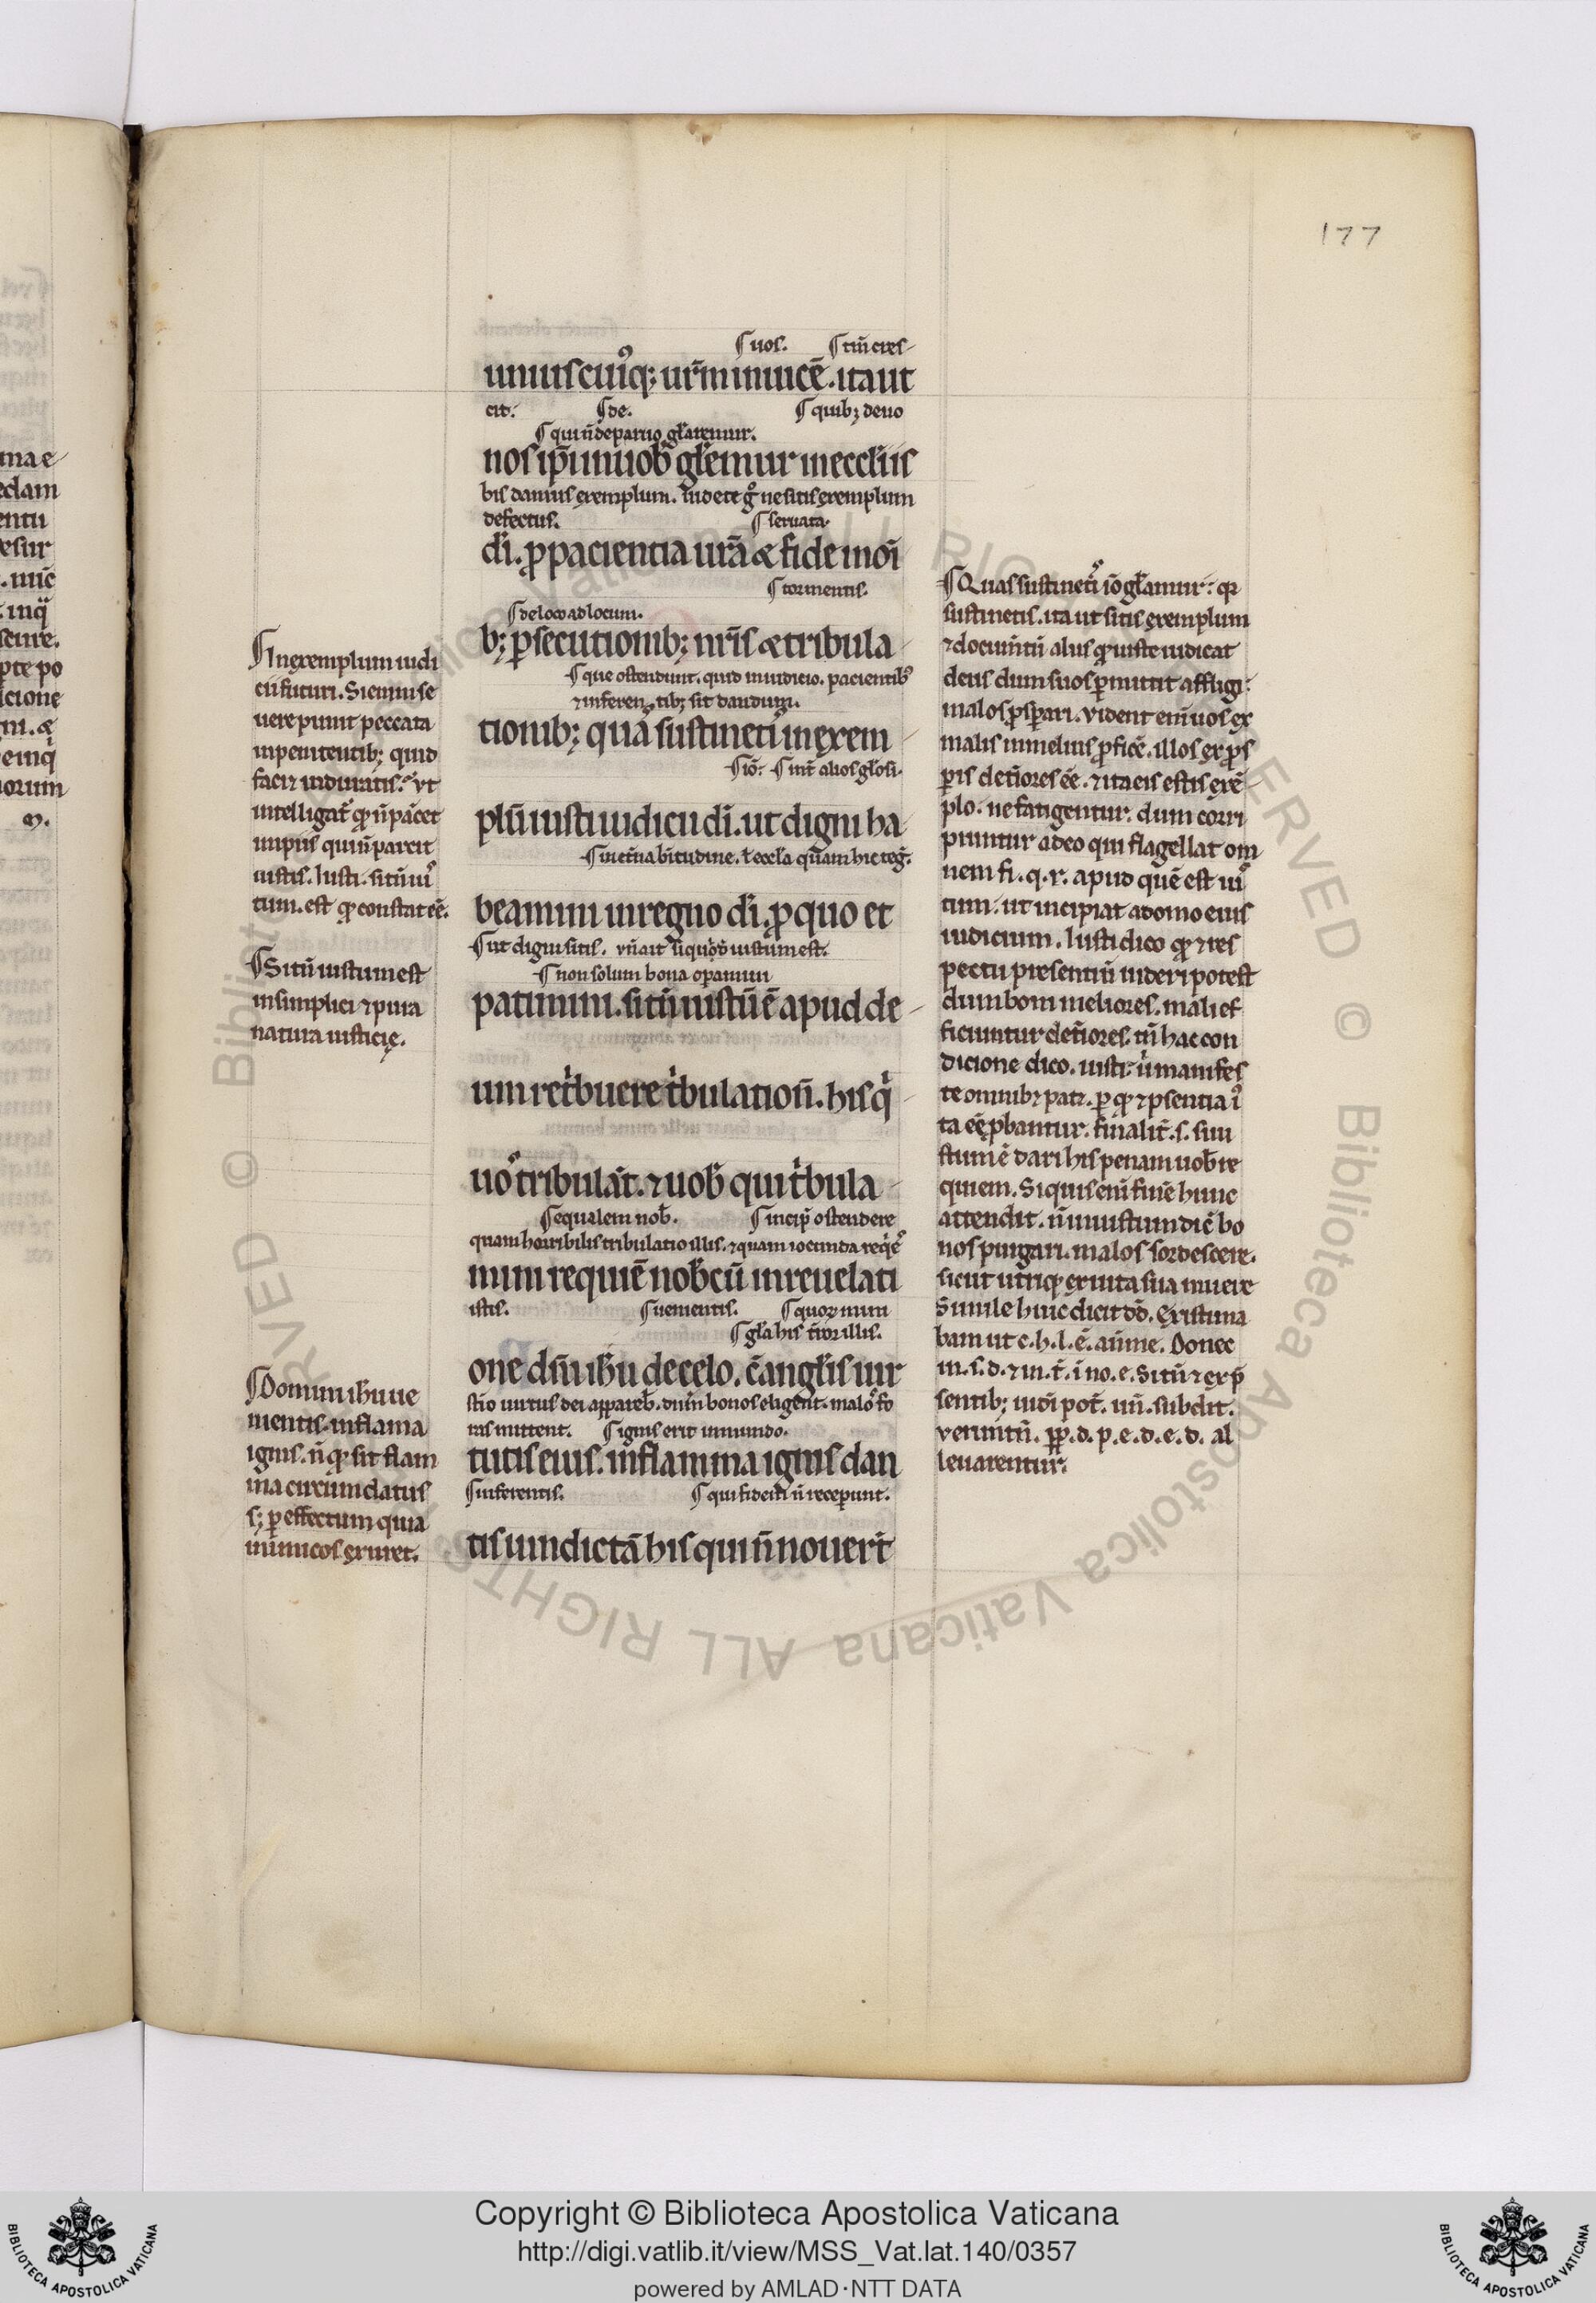 177
¶ uos. ¶ tm̄ cres-
uniuscuiꝰq; ur̄m inuicē. ita ut
cit. ¶ de. ¶ quib; deuo
¶ qui n̄ de paruo gl̄aremur.
nos ip̄i in uob̄ gl̄emur in eccl̄iis
bis damus exemplum. uidete gͦ ne sitis exemplum
defectus. ¶ seruata.
dī. p̱ pacientia ur̄a & fide in oī
¶ tormentis.
¶ de loco ad locum.
b; p̱secutionib; ur̄is & tribula-
¶ que ostendunt. quid in iudicio. pacientibꝰ
⁊ inferentib; sit dandum.
tionib; quaˢ sustinetiˢ in exem-
¶ iō. ¶ int̄ alios gl̄osi.
plū iusti iudicii dī. ut digni ha-
¶ in et̄na bītudine. ł eccl̄a q̄uam hic reḡ.
beamini in regno dī. p̱ quo et
¶ ut digni sitis. vn̄ ait iustum est.
¶ non solum bona operamini
patimini. si tn̄ iustū ē apud de-
um ret͛buere t͛bulationē. his q͛-
uoˢ tribulāt. ⁊ uob̄ qui t͛bula-
¶ equalem nob̄. ¶ incip̄ ostendere
quam horribilis tribulatio illis. ⁊ quam iocunda req͛eˢ
mini requiē nob̄cū in reuelati
istis. ¶ uenientis. ¶ quoꝝ nim
¶ gl̄a his t̄ror illis.
one dn̄i ih̄u de celo. c̄ angl̄is uir
stio uirtus dei appareb̄. dum bonos eligent. maloˢ fo
ras mittent. ¶ ignis erit in mundo.
tutis eius. in flamma ignis dan
¶ inferentis. ¶ qui fidem n̄ receperunt.
tis uindictā his qui n̄ nouer̄t
¶ In exemplum iudi
cii futuri. Si enim se
uere punit peccata
inpenitentib; quid
faciet induratis. vt
intelligat̄ qꝫ n̄ pācet
impiis qui n̄ parcit
iustis. Iusti. si tn̄ iuˢ
tum. est qꝫ constat eē.
¶ Si tn̄ iustum est
in simplici ⁊ pura
natura iusticię.
¶ Domini ih̄u ue
nientis. in flamma
ignis. n̄ qꝫ sit flam
ma circumdatus
s; p̱ effectum quia
inimicos exuret.
¶ Quas sustinetiˢ iō gl̄amur: qꝛ
sustinetis. ita ut sitis exemplum
⁊ documtū aliis qꝫ iuste iudicat
deus dum suos p̱mittit affligi:
malos p̱sperari. vident enī uos ex
malis in melius p̱ficē. illos ex p̱s
p̱is det̄iores eē. ⁊ ita eis estis exē-
plo. ne fatigentur. dum corri
piuntur a deo qui flagellat om
nem fi. q. r. apud quē est iuˢ
tum. ut incipiat a domo eius
iudicium. Iusti dico qꝫ ⁊ res
pectu presentiū uideri potest
dum boni meliores. mali ef
ficiuntur det̄iores. tn̄ hac con
dicione dico. iusti: n͛ manifes
te omnib; pat;. p̱ qꝫ ⁊ p̄sentia iˢ
ta eē p̱bantur. finalit̄. s. si iu
stum ē dari his penam uob̄ re
quiem. Si quis enī finē hunc
attendit. n̄ iniustum dic̄ bo
nos purgari. malos sordescere.
sicut utriqꝫ ex uita sua muere
Simile huic dicit dd̄. Existima
bam ut c. h. l. ē. an̄ me. Donec
in. s. d. ⁊ in. t̄. i no. e. Si tn̄ ⁊ ex p̄
sentib; uidi pot̄. un̄. subdit.
verumtn̄. pp̱. d. p. e. d. e. d. al
leuarentur.
inae
clam
entu
esur
. nuc
. inq
scire.
pte po
icione
m. &
einq
iorum
Copyright © Biblioteca Apostolica Vaticana
http://digi.vatlib.it/view/MSS_Vat.lat.140/0357
powered by AMLAD·NTT DATA
BIBLIOTECA APOSTOLICA VATICANA
BIBLIOTECA APOSTOLICA VATICANA
© Biblioteca Apostolica Vaticana ALL RIGHTS RESERVED © Biblioteca Apostolica Vaticana ALL RIGHTS RESERVED